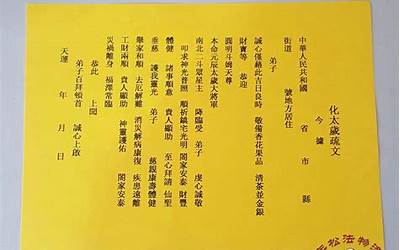 化太歲疏文
今據
中華人民共和國 省 市 縣
街道 號地方居住
弟子
誠心僅藉此吉日良時 敬備香花果品 清茶並金銀
財寶等 恭迎
圓明斗姆天尊
本命元辰太歲大將軍
南北二斗眾星主 降臨受 弟子 虔心誠敬
叩求神光普照 順祈鎮宅光明 闔家安泰 財豐
體健 諸事順意 貴人顯助 至心拜請 仙聖
垂慈 護我靈光 弟子 慈親康壽體健
舉家和順 去厄解難 消災解病康復 疾患遠離
工財兩順 貴人顯助 神靈護佑
災禍離身 福澤常臨 闔家安泰
恭此 上聞
弟子百拜頓首 誠心上啟
天運 年 月 日
松法物